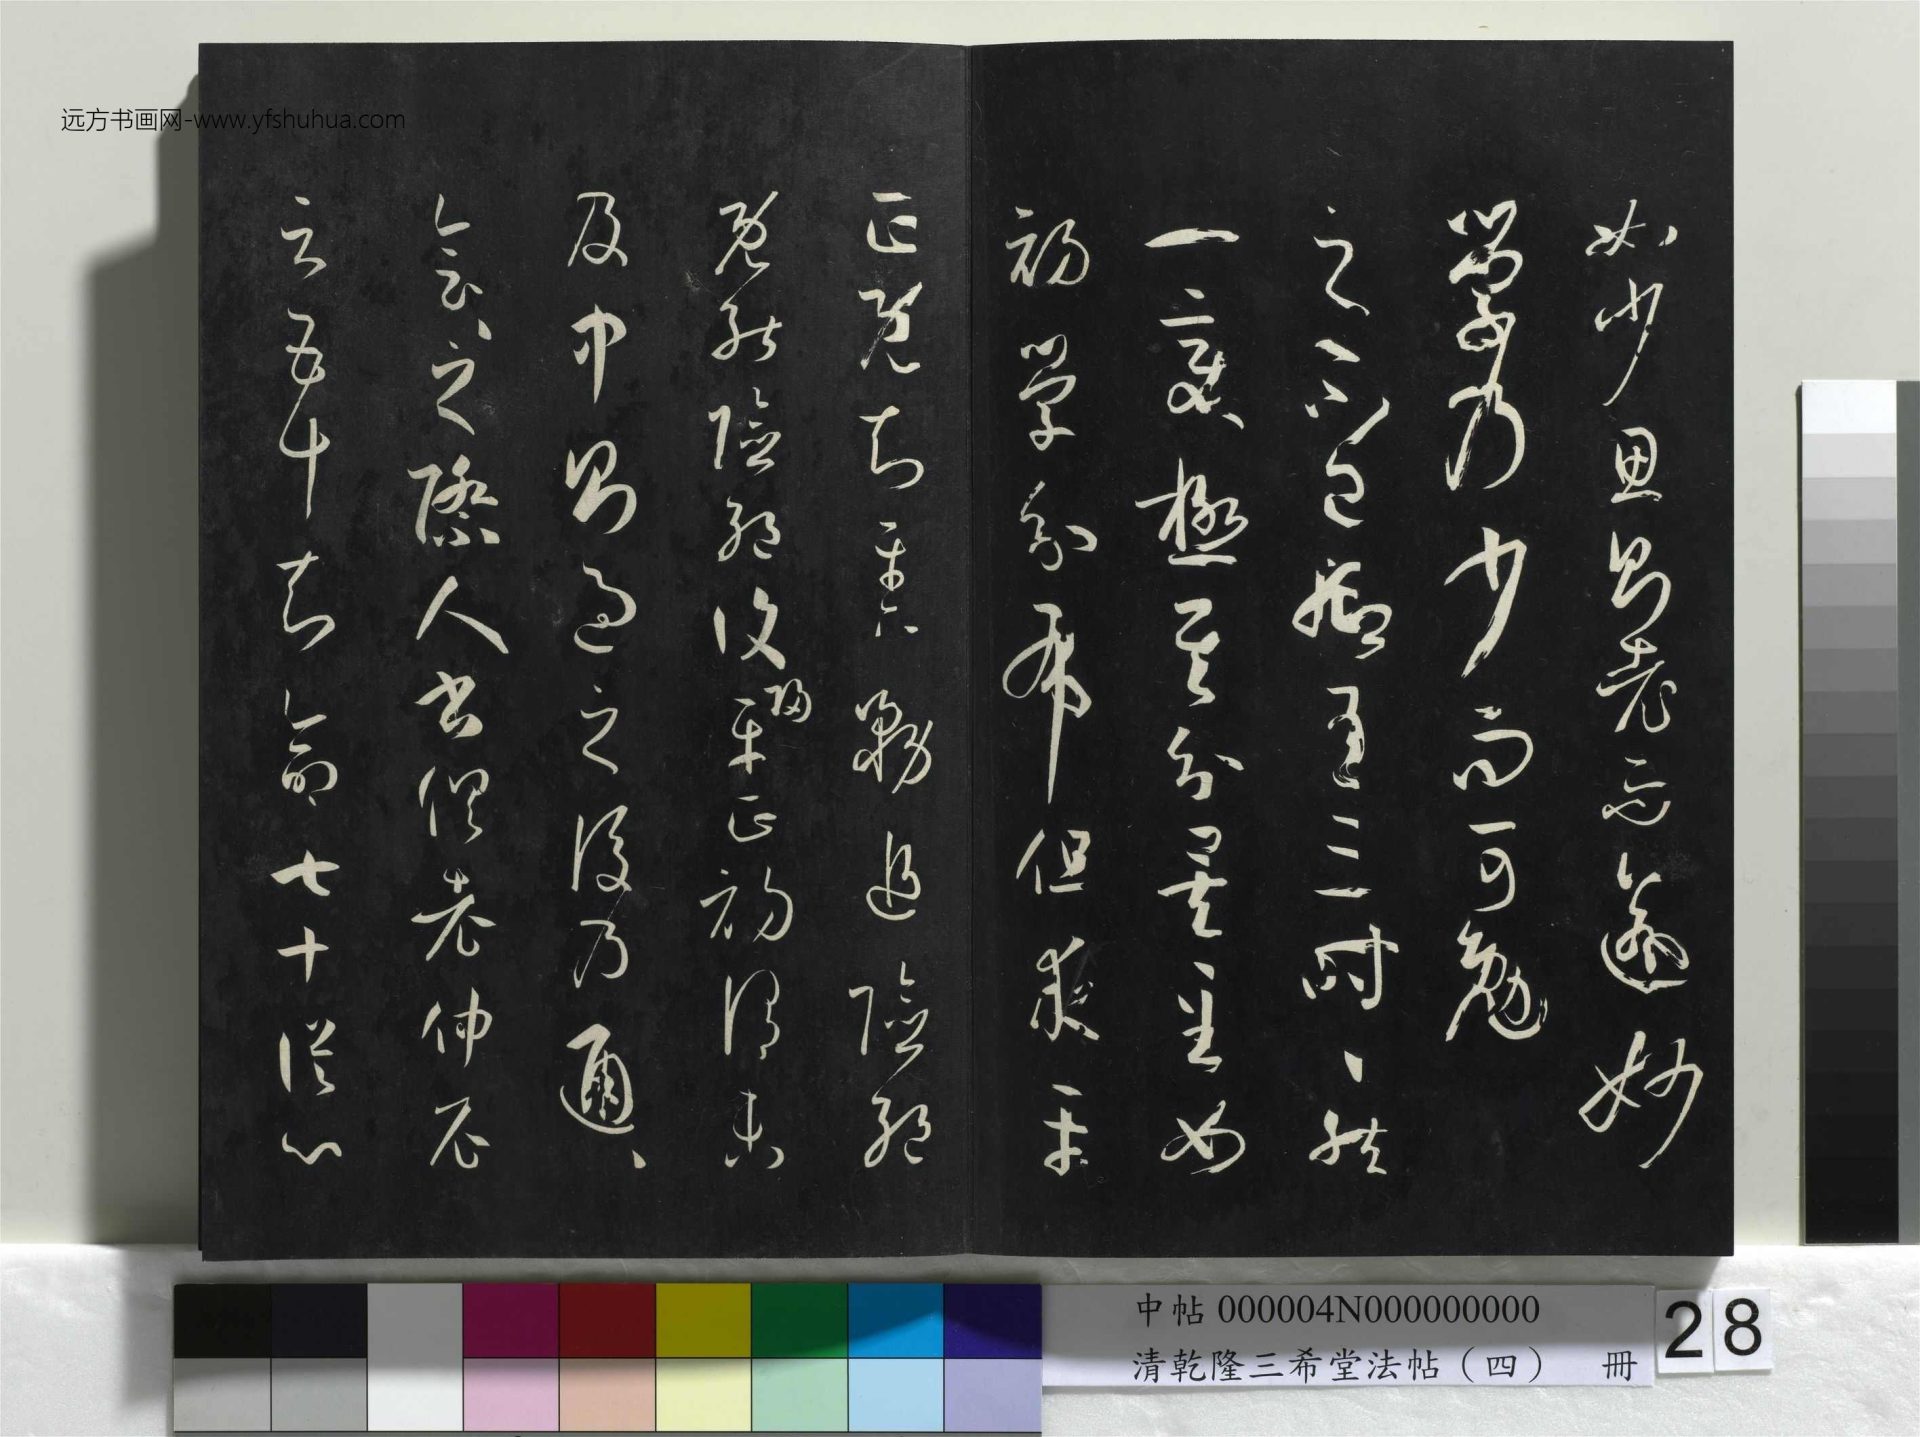 远方书画网-www.yfshuhua.com
如少思則老而逾妙
學乃少而可勉
之不已抑有三時〻然
一變極其分矣至如
初學分布但求平
正既知平正務追險絕
既能險絕復歸平正初謂未
及中則過之後乃通〻
會之際人書俱老仲尼
云五十知命七十從心
中帖 000004N000000000
清乾隆三希堂法帖（四） 冊
28